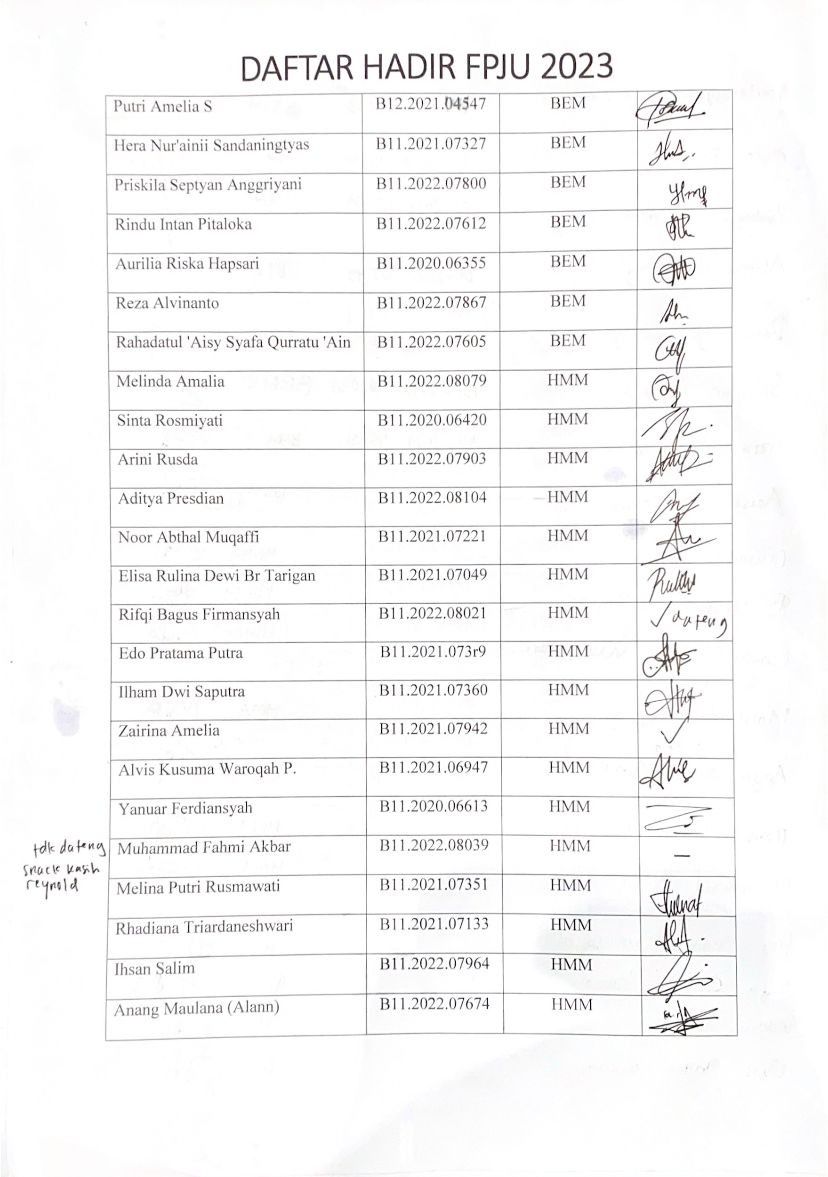 DAFTAR HADIR FPJU 2023
Putri Amelia S B12.2021.04547 BEM
Hera Nur'ainii Sandaningtyas B11.2021.07327 BEM
Priskila Septyan Anggriyani B11.2022.07800 BEM
Rindu Intan Pitaloka B11.2022.07612 BEM
Aurilia Riska Hapsari B11.2020.06355 BEM
Reza Alvinanto B11.2022.07867 BEM
Rahadatul 'Aisy Syafa Qurratu 'Ain B11.2022.07605 BEM
Melinda Amalia B11.2022.08079 HMM
Sinta Rosmiyati B11.2020.06420 HMM
Arini Rusda B11.2022.07903 HMM
Aditya Presdian B11.2022.08104 HMM
Noor Abthal Muqaffi B11.2021.07221 HMM
Elisa Rulina Dewi Br Tarigan B11.2021.07049 HMM
Rifqi Bagus Firmansyah B11.2022.08021 HMM ✓ dateng
Edo Pratama Putra B11.2021.073r9 HMM
Ilham Dwi Saputra B11.2021.07360 HMM
Zairina Amelia B11.2021.07942 HMM ✓
Alvis Kusuma Waroqah P. B11.2021.06947 HMM
Yanuar Ferdiansyah B11.2020.06613 HMM
tdk dateng Muhammad Fahmi Akbar B11.2022.08039 HMM –
snack kasih
reynold
Melina Putri Rusmawati B11.2021.07351 HMM
Rhadiana Triardaneshwari B11.2021.07133 HMM
Ihsan Salim B11.2022.07964 HMM
Anang Maulana (Alann) B11.2022.07674 HMM